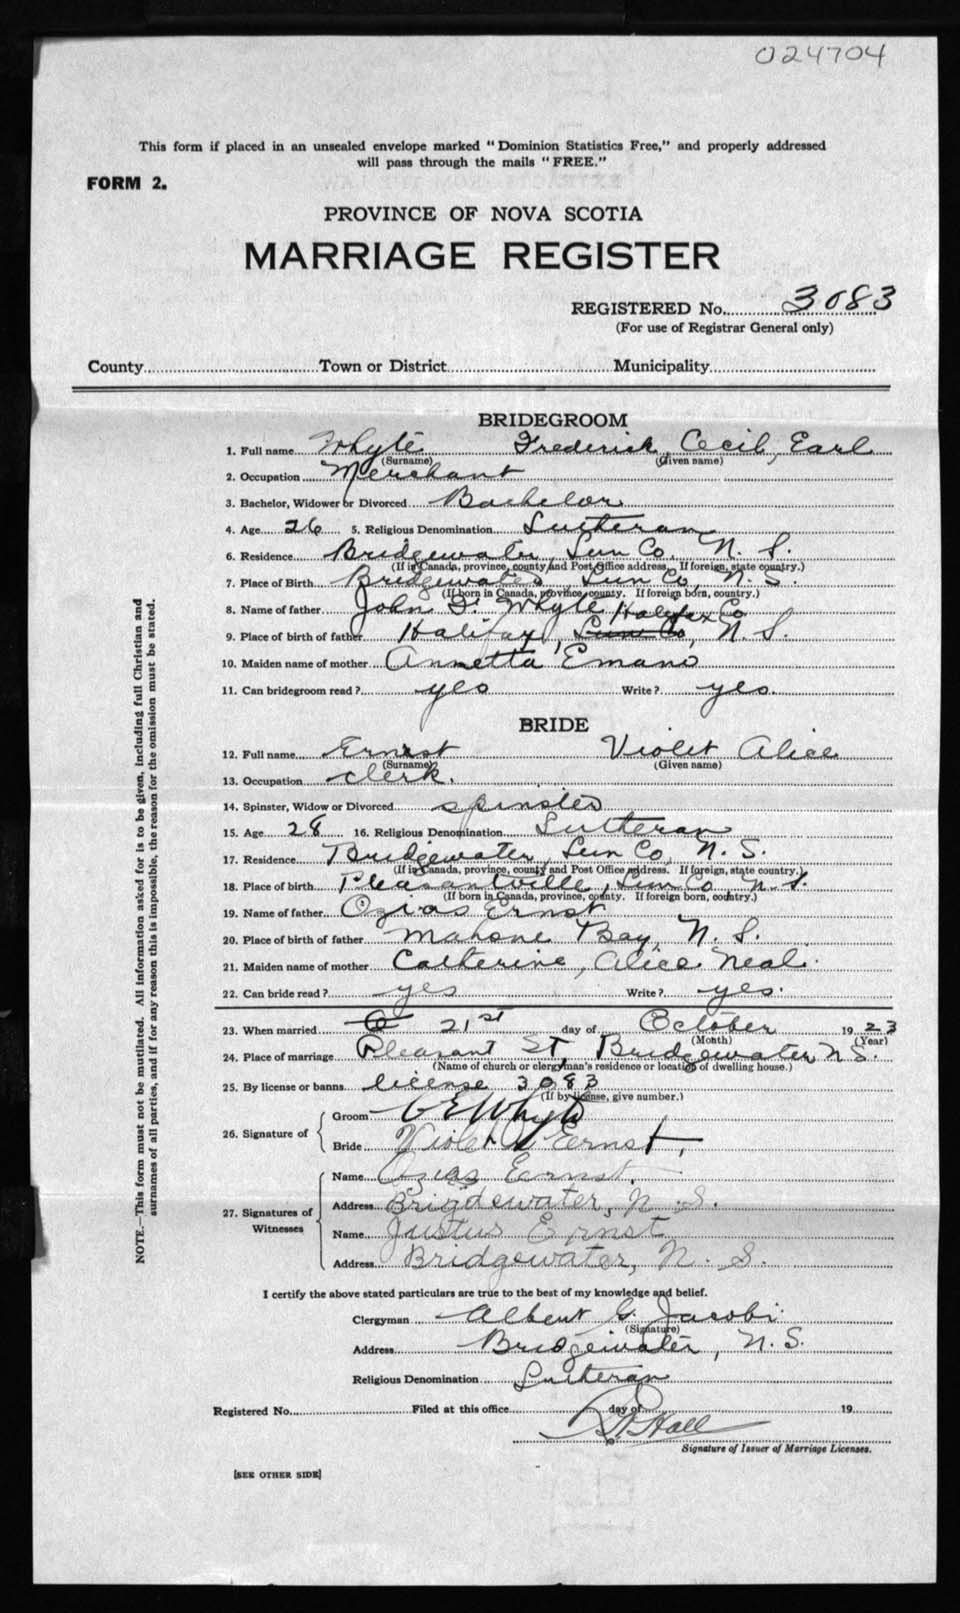 024704
This form if placed in an unsealed envelope marked "Dominion Statistics Free," and properly addressed
will pass through the mails "FREE."
FORM 2.
PROVINCE OF NOVA SCOTIA
MARRIAGE REGISTER
REGISTERED No. 3083
(For use of Registrar General only)
County Town or District Municipality
BRIDEGROOM
1. Full name Whyte Frederick, Cecil, Earl
(Surname) (Given name)
2. Occupation Merchant
3. Bachelor, Widower or Divorced Bachelor
4. Age 26 5. Religious Denomination Lutheran
6. Residence Bridgewater, Lun Co, N. S.
(If in Canada, province, county and Post Office address. If foreign, state country.)
7. Place of Birth Bridgewater, Lun Co, N. S.
(If born in Canada, province, county. If foreign born, country.)
8. Name of father John Whyte
Halifax Co
9. Place of birth of father Halifax, Lun Co, N. S.
10. Maiden name of mother Annetta Emano
11. Can bridegroom read? yes Write? yes.
BRIDE
12. Full name Ernst Violet Alice
(Surname) (Given name)
13. Occupation clerk.
14. Spinster, Widow or Divorced spinster
15. Age 28 16. Religious Denomination Lutheran
17. Residence Bridgewater, Lun Co, N. S.
(If in Canada, province, county and Post Office address. If foreign, state country.)
18. Place of birth Pleasantville, Lun Co, N. S.
(If born in Canada, province, county. If foreign born, country.)
19. Name of father Ozias Ernst
20. Place of birth of father Mahone Bay, N. S.
21. Maiden name of mother Catherine, Alice Neal.
22. Can bride read? yes Write? yes.
23. When married 21st day of October 1923
(Month) (Year)
24. Place of marriage Pleasant St, Bridgewater N S.
(Name of church or clergyman's residence or location of dwelling house.)
25. By license or banns license 3083
(If by license, give number.)
26. Signature of
Groom C E Whyte
Bride Violet A Ernst,
27. Signatures of Witnesses
Name Ozias Ernst.
Address Bridgewater, N. S.
Name Justus Ernst
Address Bridgewater, N. S.
I certify the above stated particulars are true to the best of my knowledge and belief.
Clergyman Albert G. Jacobi
(Signature)
Address Bridgewater, N. S.
Religious Denomination Lutheran
Registered No. Filed at this office day of 19
Hall
Signature of Issuer of Marriage Licenses.
[SEE OTHER SIDE]
NOTE.—This form must not be mutilated. All information asked for is to be given, including full Christian and
surnames of all parties, and if for any reason this is impossible, the reason for the omission must be stated.